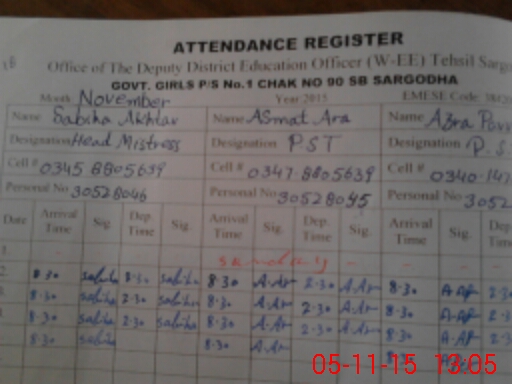 ATTENDANCE REGISTER
Office of The Deputy District Education Officer (W-EE) Tehsil Sargo
GOVT. GIRLS P/S No.1 CHAK NO 90 SB SARGODHA
Month November Year 2015 EMESE Code:
Name Sabiha Akhtar Name Asmat Ara Name Azra
Designation Head Mistress Designation PST Designation P.S
Cell # 0345 8805639 Cell # 0347.8805639 Cell # 0340.147
Personal No 30528046 Personal No 30528045 Personal No 3052
Date Arrival Time Sig. Dep. Time Sig. Arrival Time Sig. Dep. Time Sig. Arrival Time Sig. Dep. Time
1 Sunday
2 8.30 Sabiha 2.30 Sabiha 8.30 A.Ar 2.30 A.Ar 8.30 A.AP 2.3
8.30 Sabiha 2.30 Sabiha 8.30 A.Ar 2.30 A.Ar 8.30 A.AP 2.3
8.30 Sabiha 2.30 Sabiha 8.30 A.Ar 2.30 A.Ar 8.30 A.AP 2.3
8.30 Sabiha 8.30 A.Ar 8.30
05-11-15 13:05